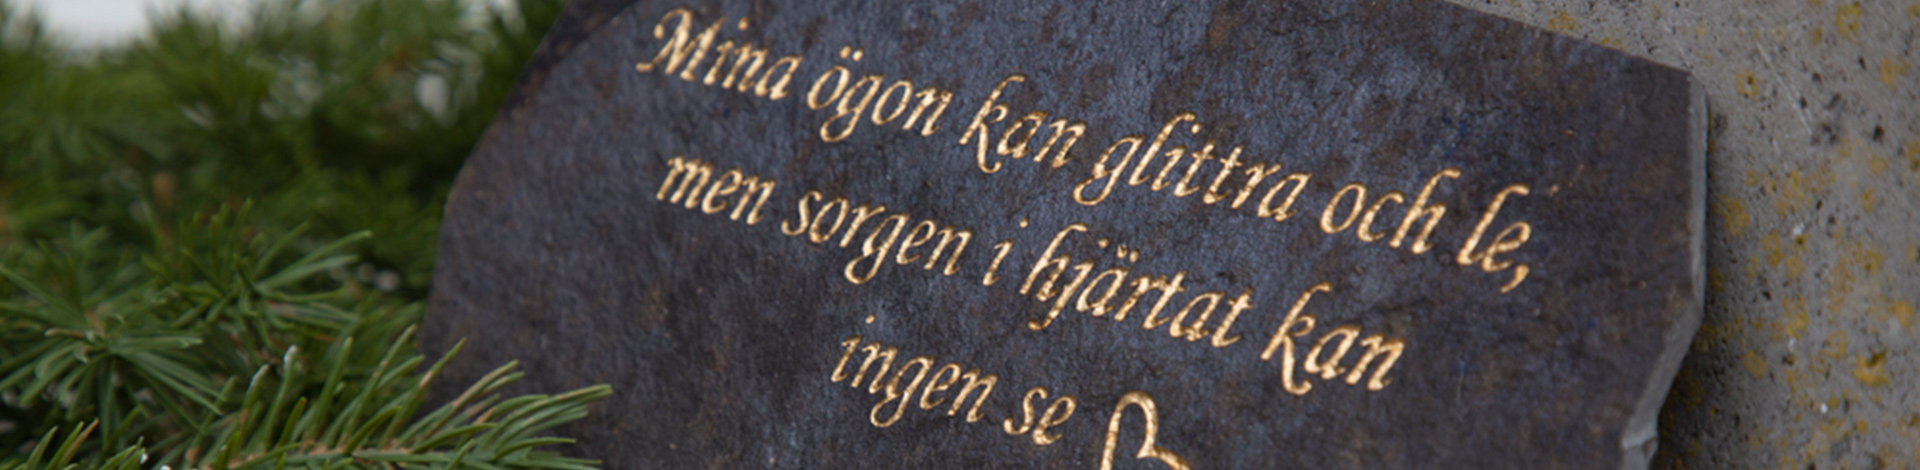 Mina ögon kan glittra och le,
men sorgen i hjärtat kan
ingen se